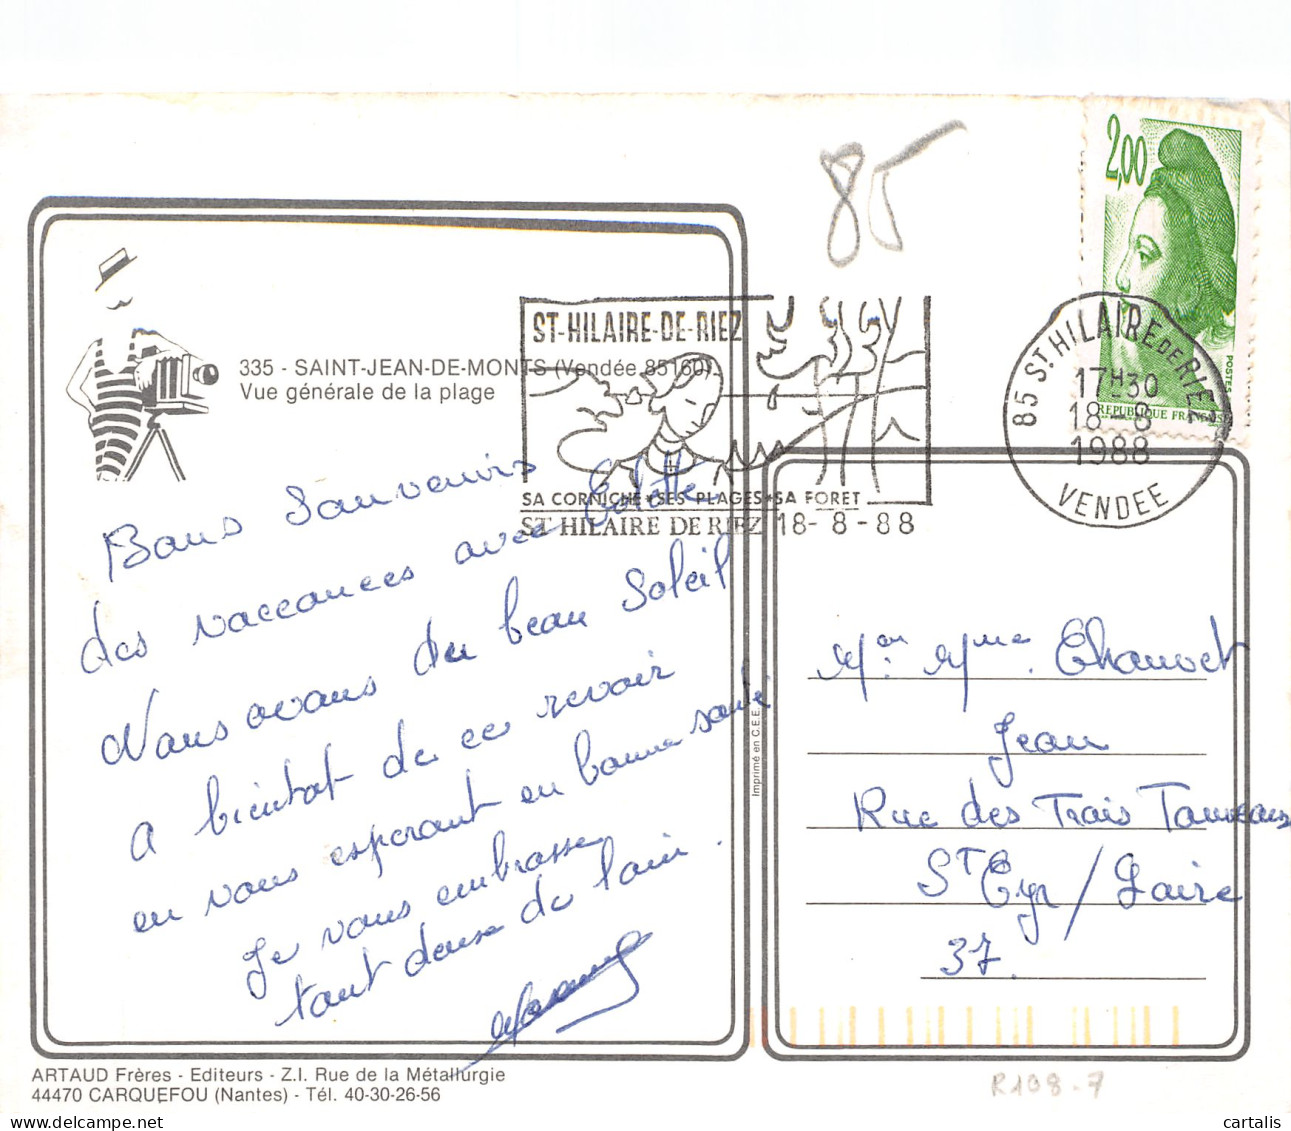 85
2,00
POSTES
REPUBLIQUE FRANÇAISE
ST-HILAIRE-DE-RIEZ
SA CORNICHE*SES PLAGES*SA FORET
ST HILAIRE DE RIEZ 18-8-88
85 ST HILAIRE DE RIEZ
17H30
18-8
1988
VENDEE
335 - SAINT-JEAN-DE-MONTS (Vendée 85160).
Vue générale de la plage
Bons Souvenirs
des vaccances avec Colette
Nous avons du beau Soleil
a bientot de ce revoir
en vous esperant en bonne santé
Je vous embrasse
tout deux de loin.
Imprimé en C.E.E.
Mr et Mme Chauvet
Jean
Rue des Trois Tonneaux
St Cyr / Loire
37.
ARTAUD Frères - Editeurs - Z.I. Rue de la Métallurgie
44470 CARQUEFOU (Nantes) - Tél. 40-30-26-56
R108-7
cartalis